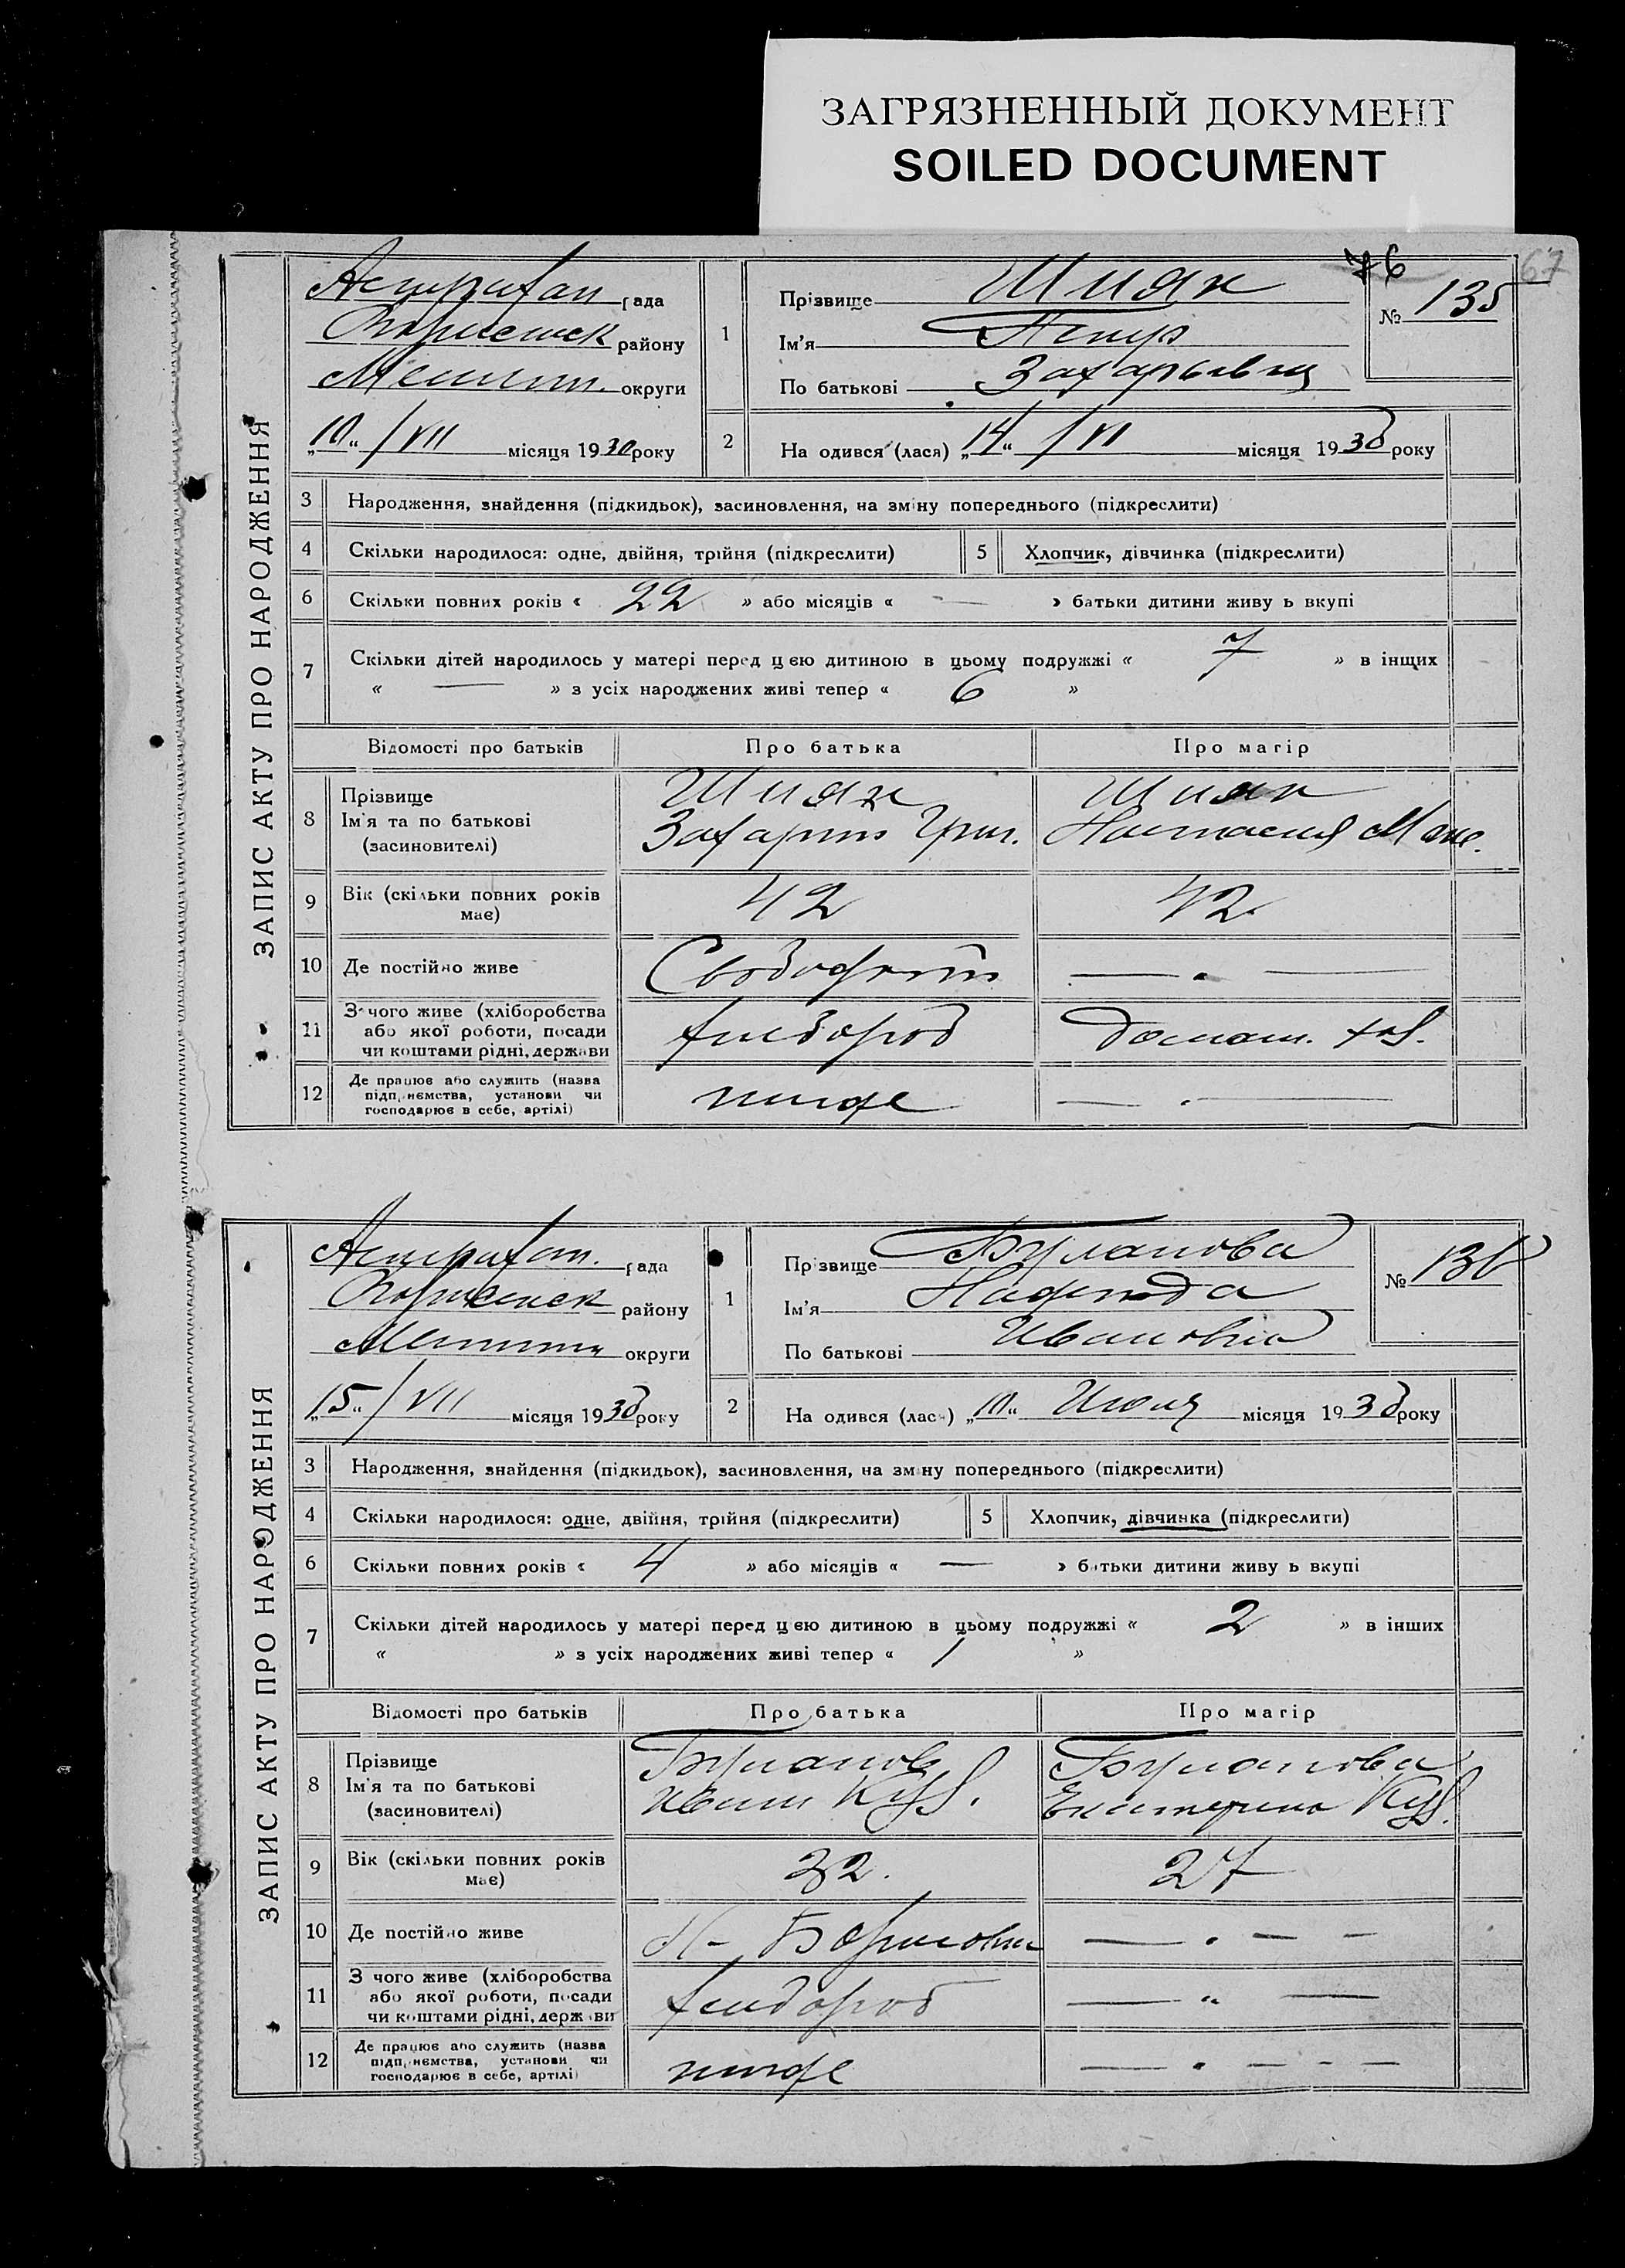 ЗАГРЯЗНЕННЫЙ ДОКУМЕНТ
SOILED DOCUMENT
76
67
ЗАПИС АКТУ ПРО НАРОДЖЕННЯ
Астрахан рада
району
округи
"10" /VII місяця 1930 року
1
Прізвище Шиян
Ім'я Петр
По батькові Захарьевич
№ 135
2
На одився (лася) "14" /VI місяця 1930 року
3 Народження, знайдення (підкидьок), засиновлення, на зміну попереднього (підкреслити)
4 Скільки народилося: одне, двійня, трійня (підкреслити)
5 Хлопчик, дівчинка (підкреслити)
6 Скільки повних років « 22 » або місяців « — » батьки дитини живу ь вкупі
7 Скільки дітей народилось у матері перед цею дитиною в цьому подружжі « 7 » в інщих
« — » з усіх народжених живі тепер « 6 »
Відомості про батьків Про батька Про матір
8 Прізвище
Ім'я та по батькові
(засиновителі)
Шиян
Захарий Григ.
Шиян
Настасия
9 Вік (скільки повних років
має)
42
42
10 Де постійно живе
— " —
11 З чого живе (хліборобства
або якої роботи, посади
чи коштами рідні, держави
хлебороб
домаш. хоз.
12 Де працює або служить (назва
підприємства, установи чи
господарює в себе, артілі)
нигде
— " —
ЗАПИС АКТУ ПРО НАРОДЖЕННЯ
Астрахан. рада
району
округи
"15" /VII місяця 1930 року
1
Прізвище Буланова
Ім'я Надежда
По батькові Ивановна
№ 136
2
На одився (лася) "10" Июля місяця 1930 року
3 Народження, знайдення (підкидьок), засиновлення, на зміну попереднього (підкреслити)
4 Скільки народилося: одне, двійня, трійня (підкреслити)
5 Хлопчик, дівчинка (підкреслити)
6 Скільки повних років « 4 » або місяців « — » батьки дитини живу ь вкупі
7 Скільки дітей народилось у матері перед цею дитиною в цьому подружжі « 2 » в інших
« » з усіх народжених живі тепер « 1 »
Відомості про батьків Про батька Про матір
8 Прізвище
Ім'я та по батькові
(засиновителі)
Буланов
Иван Куз.
Буланова
Екатерина Куз.
9 Вік (скільки повних років
має)
32.
27
10 Де постійно живе
— " — —
11 З чого живе (хліборобства
або якої роботи, посади
чи коштами рідні, держави
хлебороб
— " —
12 Де працює або служить (назва
підприємства, установи чи
господарює в себе, артілі)
нигде
— " — - —